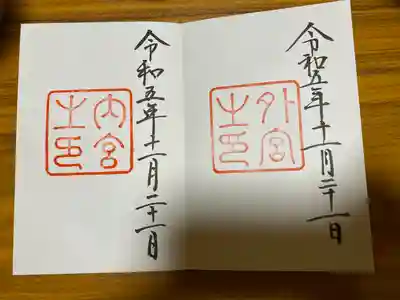 令和五年十一月二十一日
外宮
之印
令和五年十一月二十一日
内宮
之印